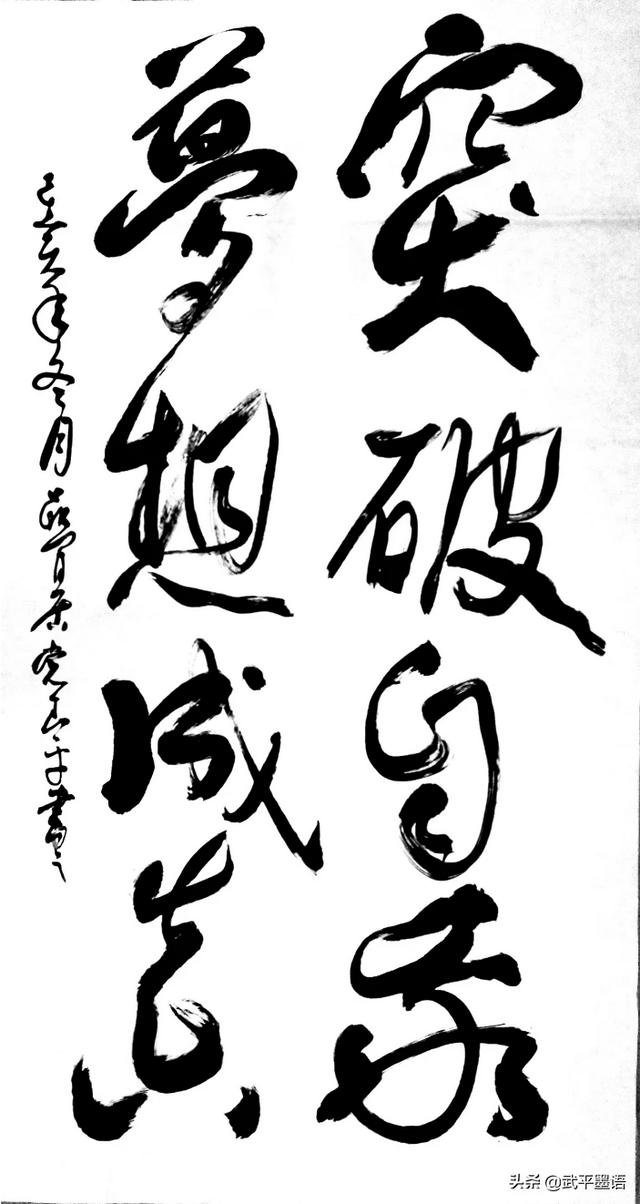 突破自我
夢想成真
己亥年冬月 書
头条 @武平墨语